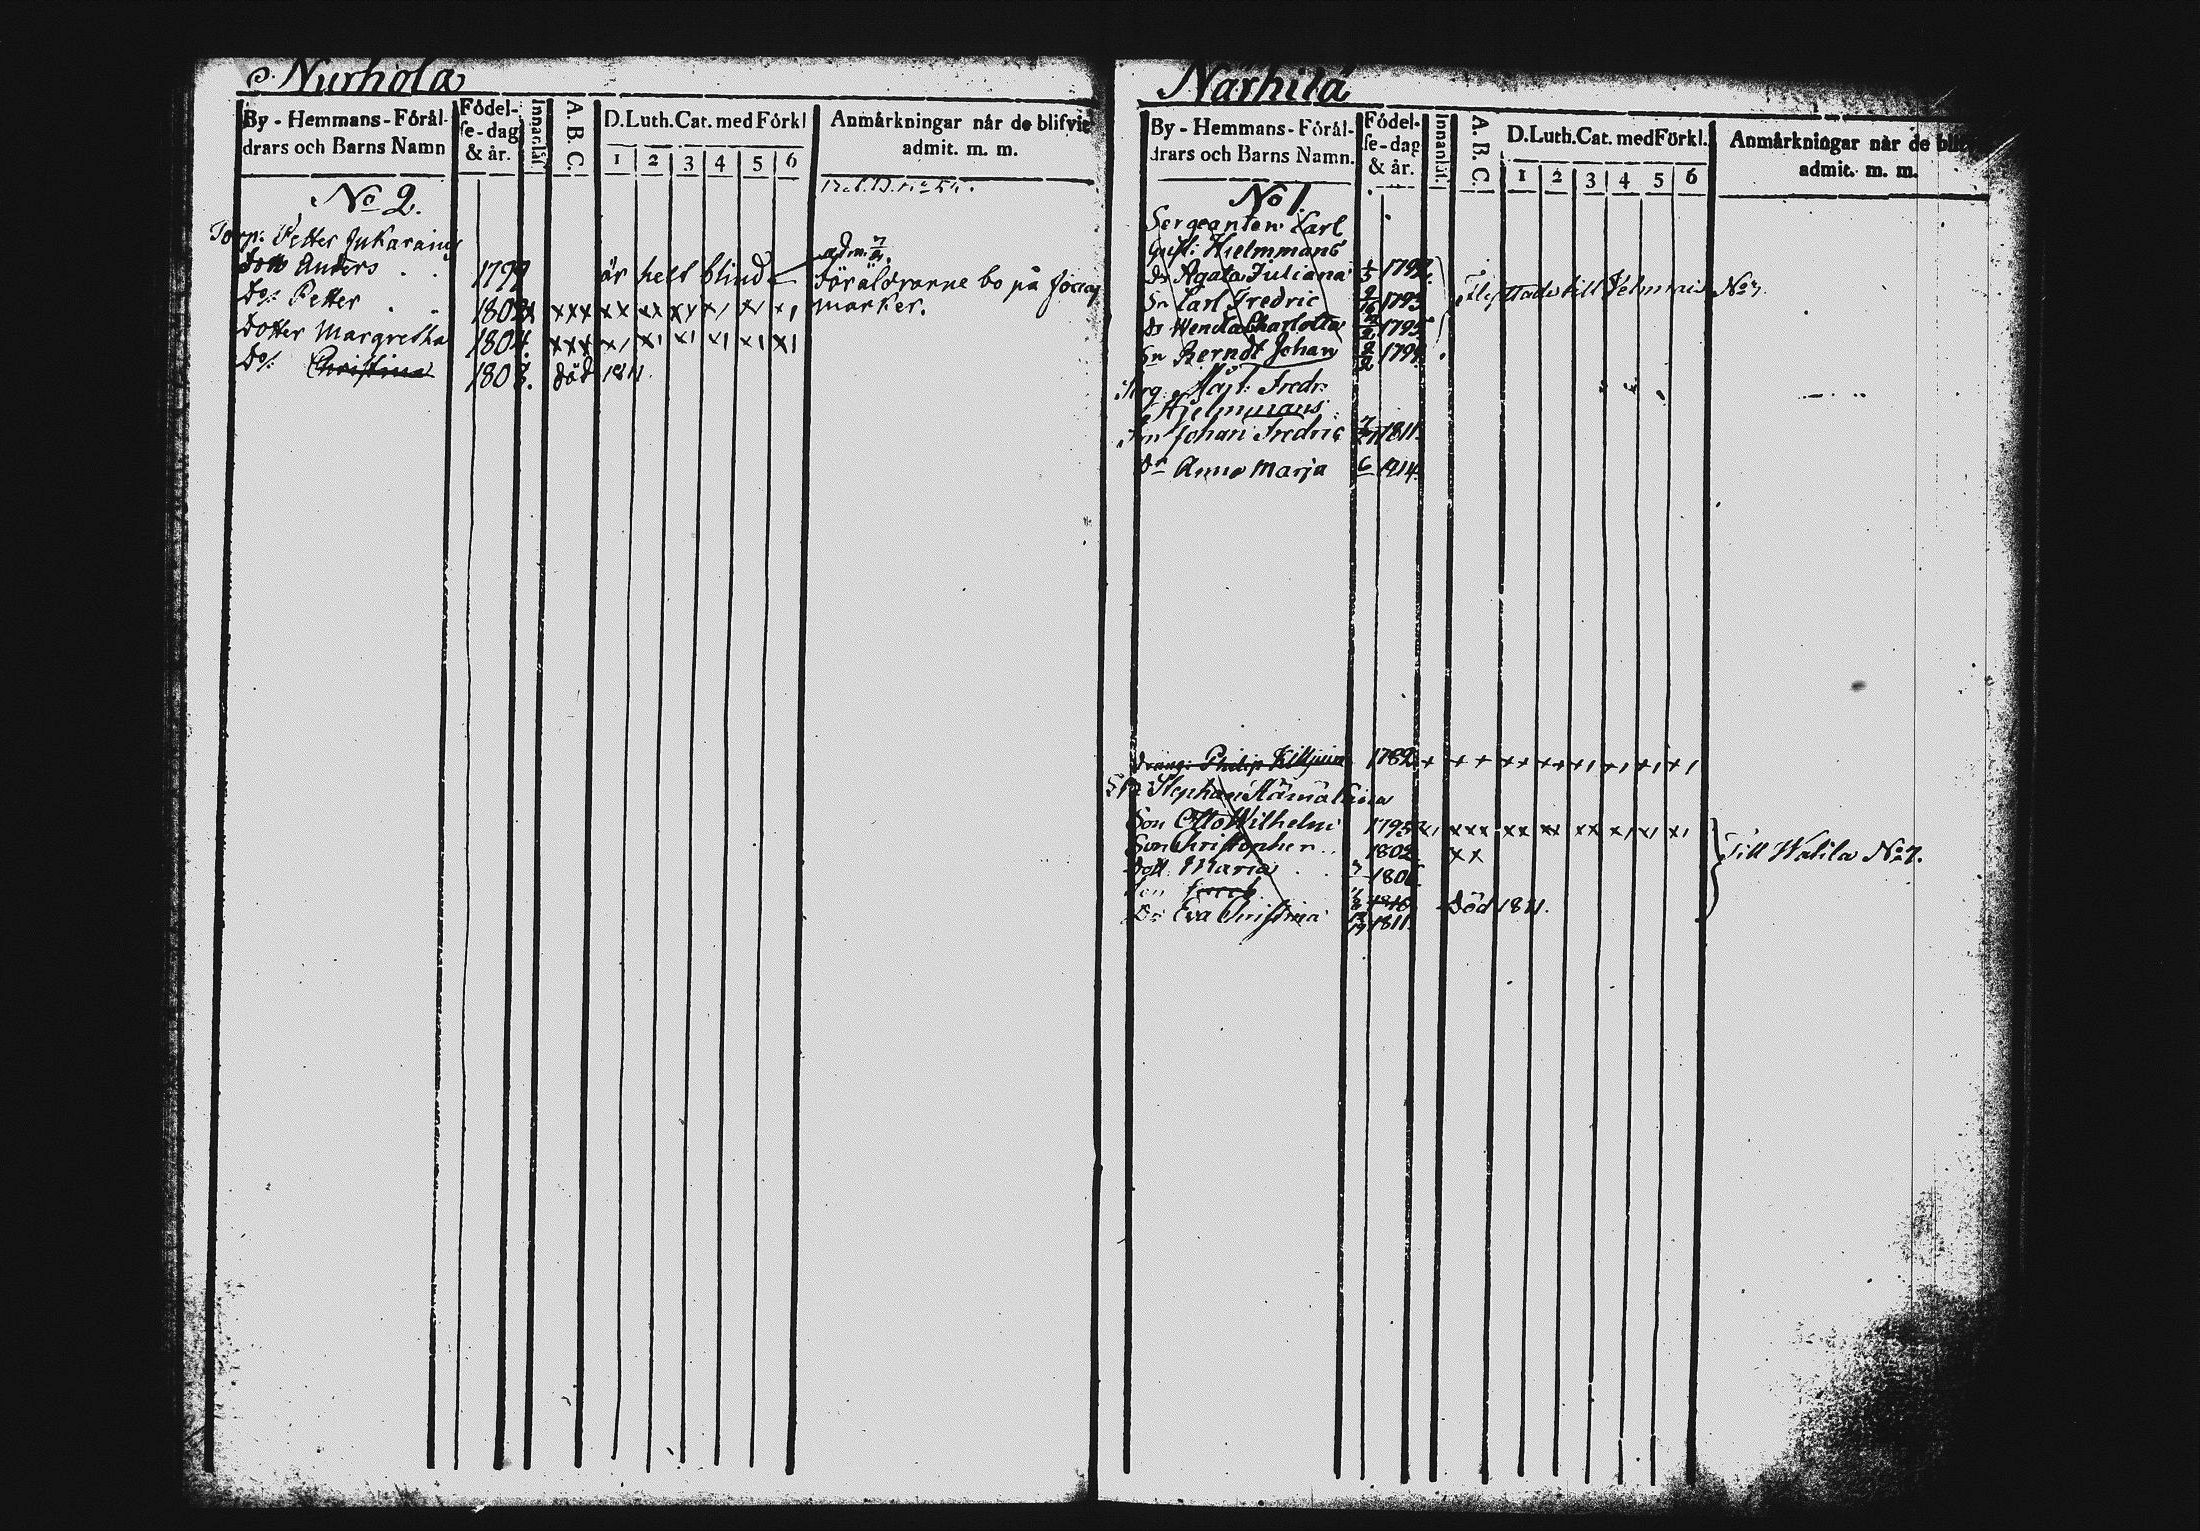 Nurhola
By - Hemmans - Föräl-
drars och Barns Namn
Födel-
se-dag
& år.
Innanläs.
A. B. C.
D.Luth.Cat. med Förkl
1 2 3 4 5 6
Anmärkningar når de blifvit
admit. m. m.
No 2.
Torp: Petter Jukaraines
Son Anders . . 1799 är helt blind
adm:
föräldrarne bo på
Do/: Petter . . x xxx xx xx xx x/ x/ x/
marker.
Dotter Margretha 1804 xxx x/ x/ x/ x/ x/ x/
Do/: Christina 1808. död 1811
Narhila
By - Hemmans - Föräl-
drars och Barns Namn.
Födel-
se-dag
& år.
Innanläs.
A. B. C.
D.Luth.Cat. med Förkl.
1 2 3 4 5 6
Anmärkningar når de
admit. m. m.
No 1.
Sergeanten Carl
Gust: Hielmmans
Dr Agata Juliana
Sn Carl Fredric 1793
Flyttade till No
Dr Wenda Charlotta 1795
Sn Berndt Johan
Serg: Fredr:
Hjelmmans
Sn Johan Fredric 1811
Dr Anna Marja 1814
Dräng: Philip 1782 x x x xx xx x/ x/ x/ x/
Stephan
Son Otto Wilhelm 1795 x/ xxx xx xx xx x/ x/ x/
Son Christopher 1802 xx
Till No 7.
Dott. Maria
Son Död 1811.
Dr Eva Christina 1811.